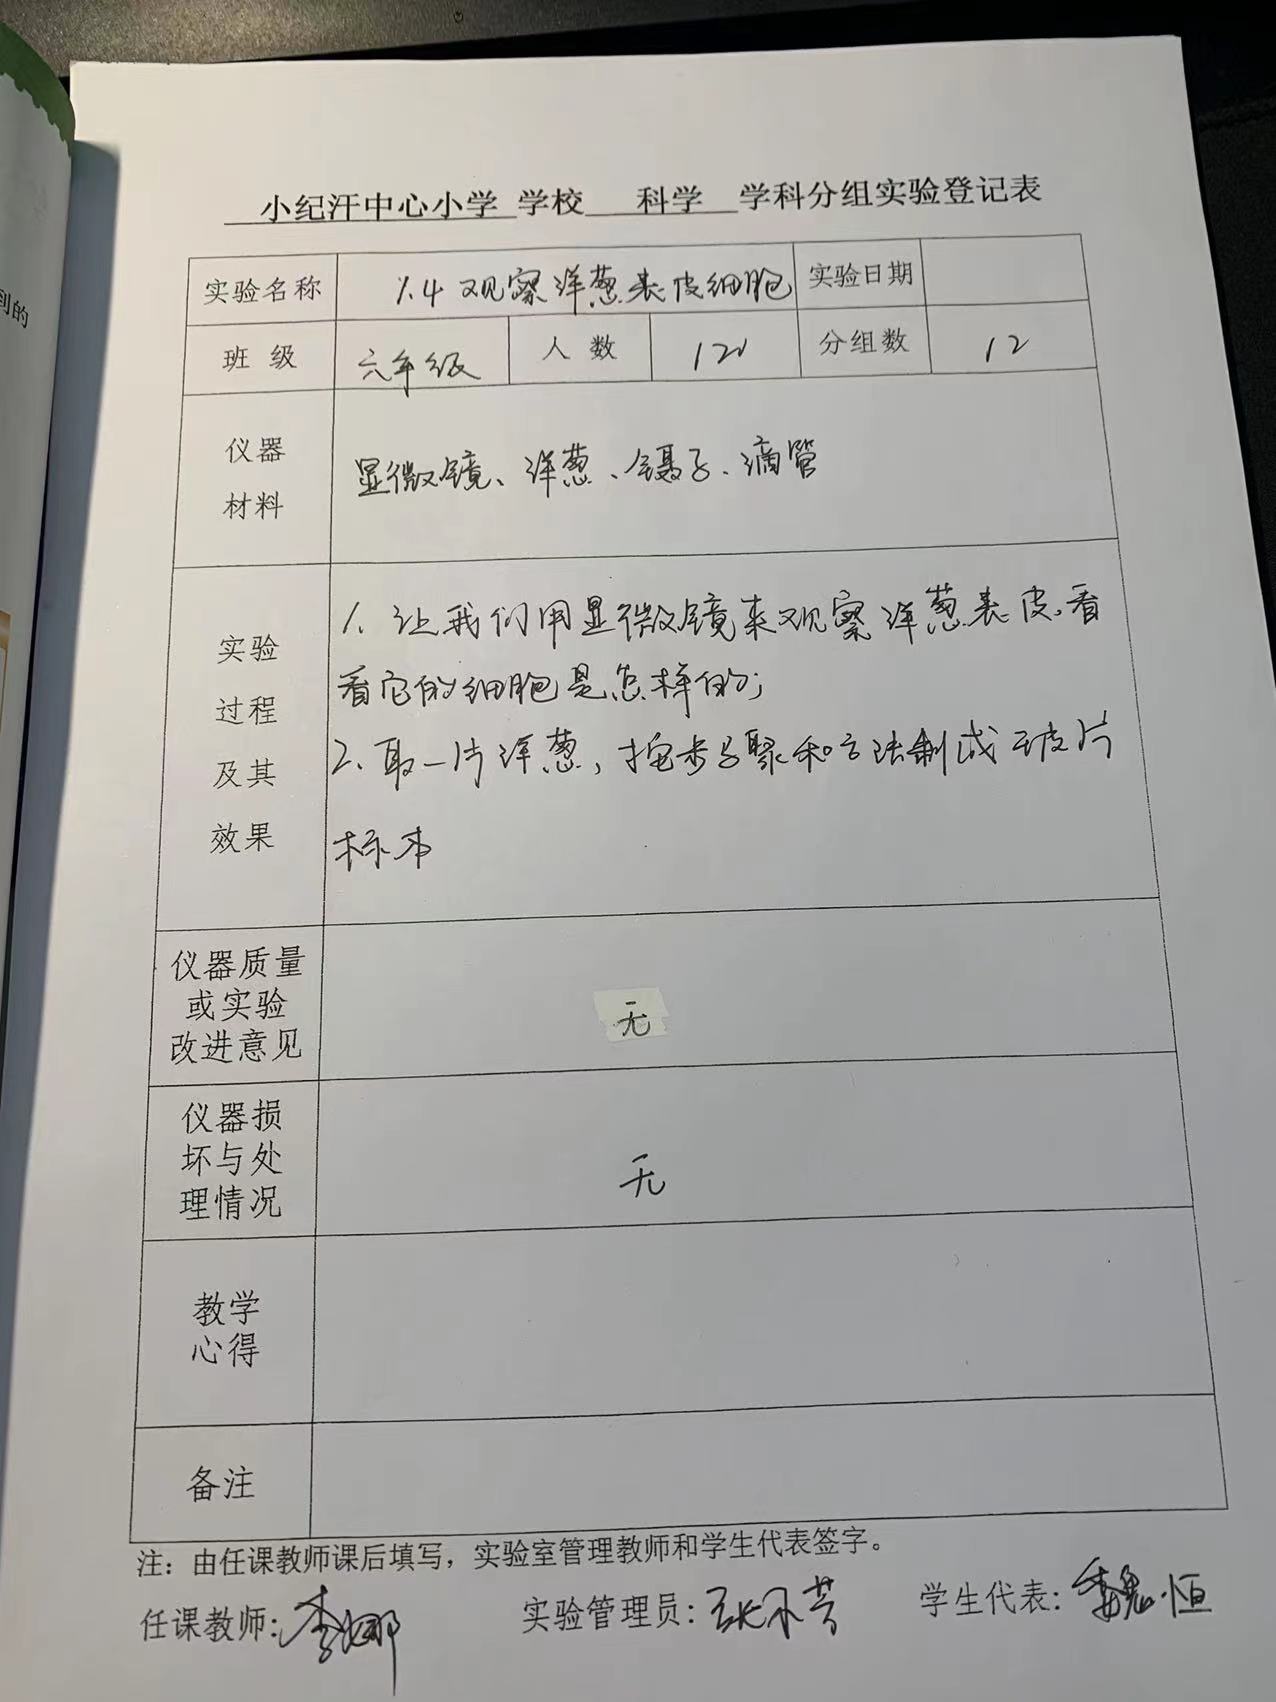 到的
小纪汗中心小学 学校 科学 学科分组实验登记表
实验名称 1.4 观察洋葱表皮细胞 实验日期
班 级 六年级 人 数 121 分组数 12
仪器
材料
显微镜、洋葱、镊子、滴管
实验
过程
及其
效果
1. 让我们用显微镜来观察洋葱表皮,看
看它的细胞是怎样的;
2. 取一片洋葱,按步骤和方法制成玻片
标本
仪器质量
或实验
改进意见
无
仪器损
坏与处
理情况
无
教学
心得
备注
注:由任课教师课后填写,实验室管理教师和学生代表签字。
任课教师:李娜 实验管理员: 学生代表:魏恒